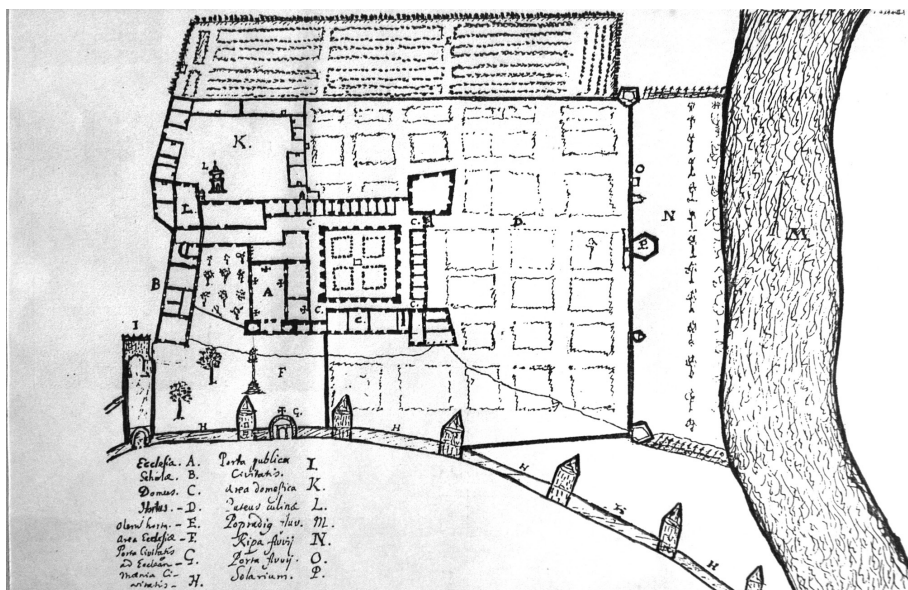 K.
L.
L.
C.
C.
D.
N
M
P.
B
A
C.
C
I
F
G.
H
H
H
H
H
Ecclesia. A.
Scholæ. B.
Domus. C.
Hortus. - D.
- E.
Area Ecclesiæ - F.
Porta Civitatis
ad Ecclesiam G.
Mœnia Ci-
vitatis - H.
Porta publica
Civitatis. I.
Area domestica K.
Puteus culinæ L.
Popradig fluv. M.
Ripa fluvij N.
Porta fluvij. O.
Solarium. P.